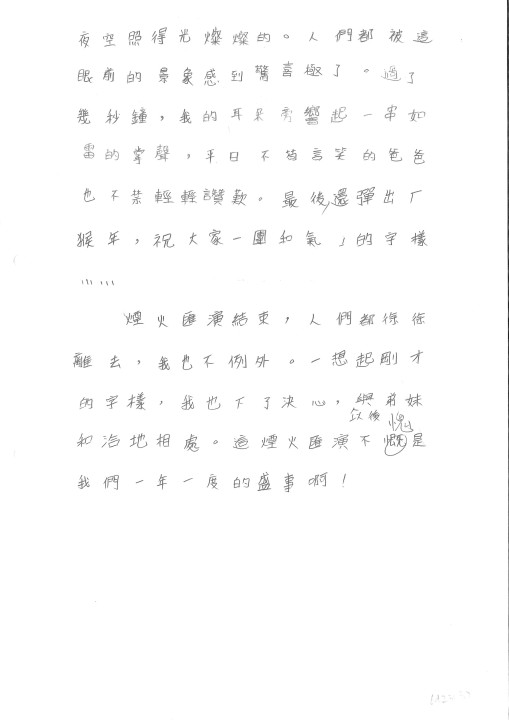 夜空照得光燦燦的。人們都被這
眼前的景象感到驚喜極了。過了
幾秒鐘，我的耳朵旁響起一串如
雷的掌聲，平日不苟言笑的爸爸
也不禁輕輕讚歎。最後，還彈出「
猴年，祝大家一團和氣」的字樣
……
煙火匯演結束，人們都徐徐
離去，我也不例外。一想起剛才
的字樣，我也下了決心，以後與弟妹
和洽地相處。這煙火匯演不愧是
我們一年一度的盛事啊！